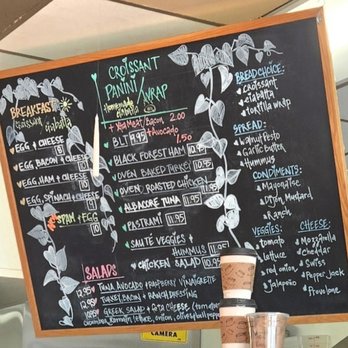 BREAKFAST
croissant
ciabatta
EGG + CHEESE
EGG, BACON + CHEESE
EGG, HAM + CHEESE
EGG, SPINACH + CHEESE
SPAM + EGG
CROISSANT
PANINI/
WRAP
Homemade
ciabatta
+ Xtra Meat/Bacon 2.00
+ Avocado 1.50
BLT 9.95
BLACK FOREST HAM 10.95
OVEN BAKED TURKEY 10.95
OVEN ROASTED CHICKEN 11.95
ALBACORE TUNA 11.95
PASTRAMI 11.95
SAUTÉ VEGGIES +
HUMMUS 11.95
CHICKEN SALAD 10.95
BREAD CHOICE:
croissant
ciabatta
tortilla wrap
SPREAD:
Walnut Pesto
Garlic butter
Hummus
CONDIMENTS:
Mayonaise
Dijon Mustard
Ranch
VEGGIES:
tomato
lettuce
red onion
jalapeño
CHEESE:
Mozzarella
Cheddar
Swiss
Pepper jack
Provolone
SALADS
12.95 TUNA, AVOCADO + RASPBERRY VINAIGRETTE
12.95 TURKEY, BACON + RANCH DRESSING
GREEK SALAD + FETA CHEESE
CAMERA